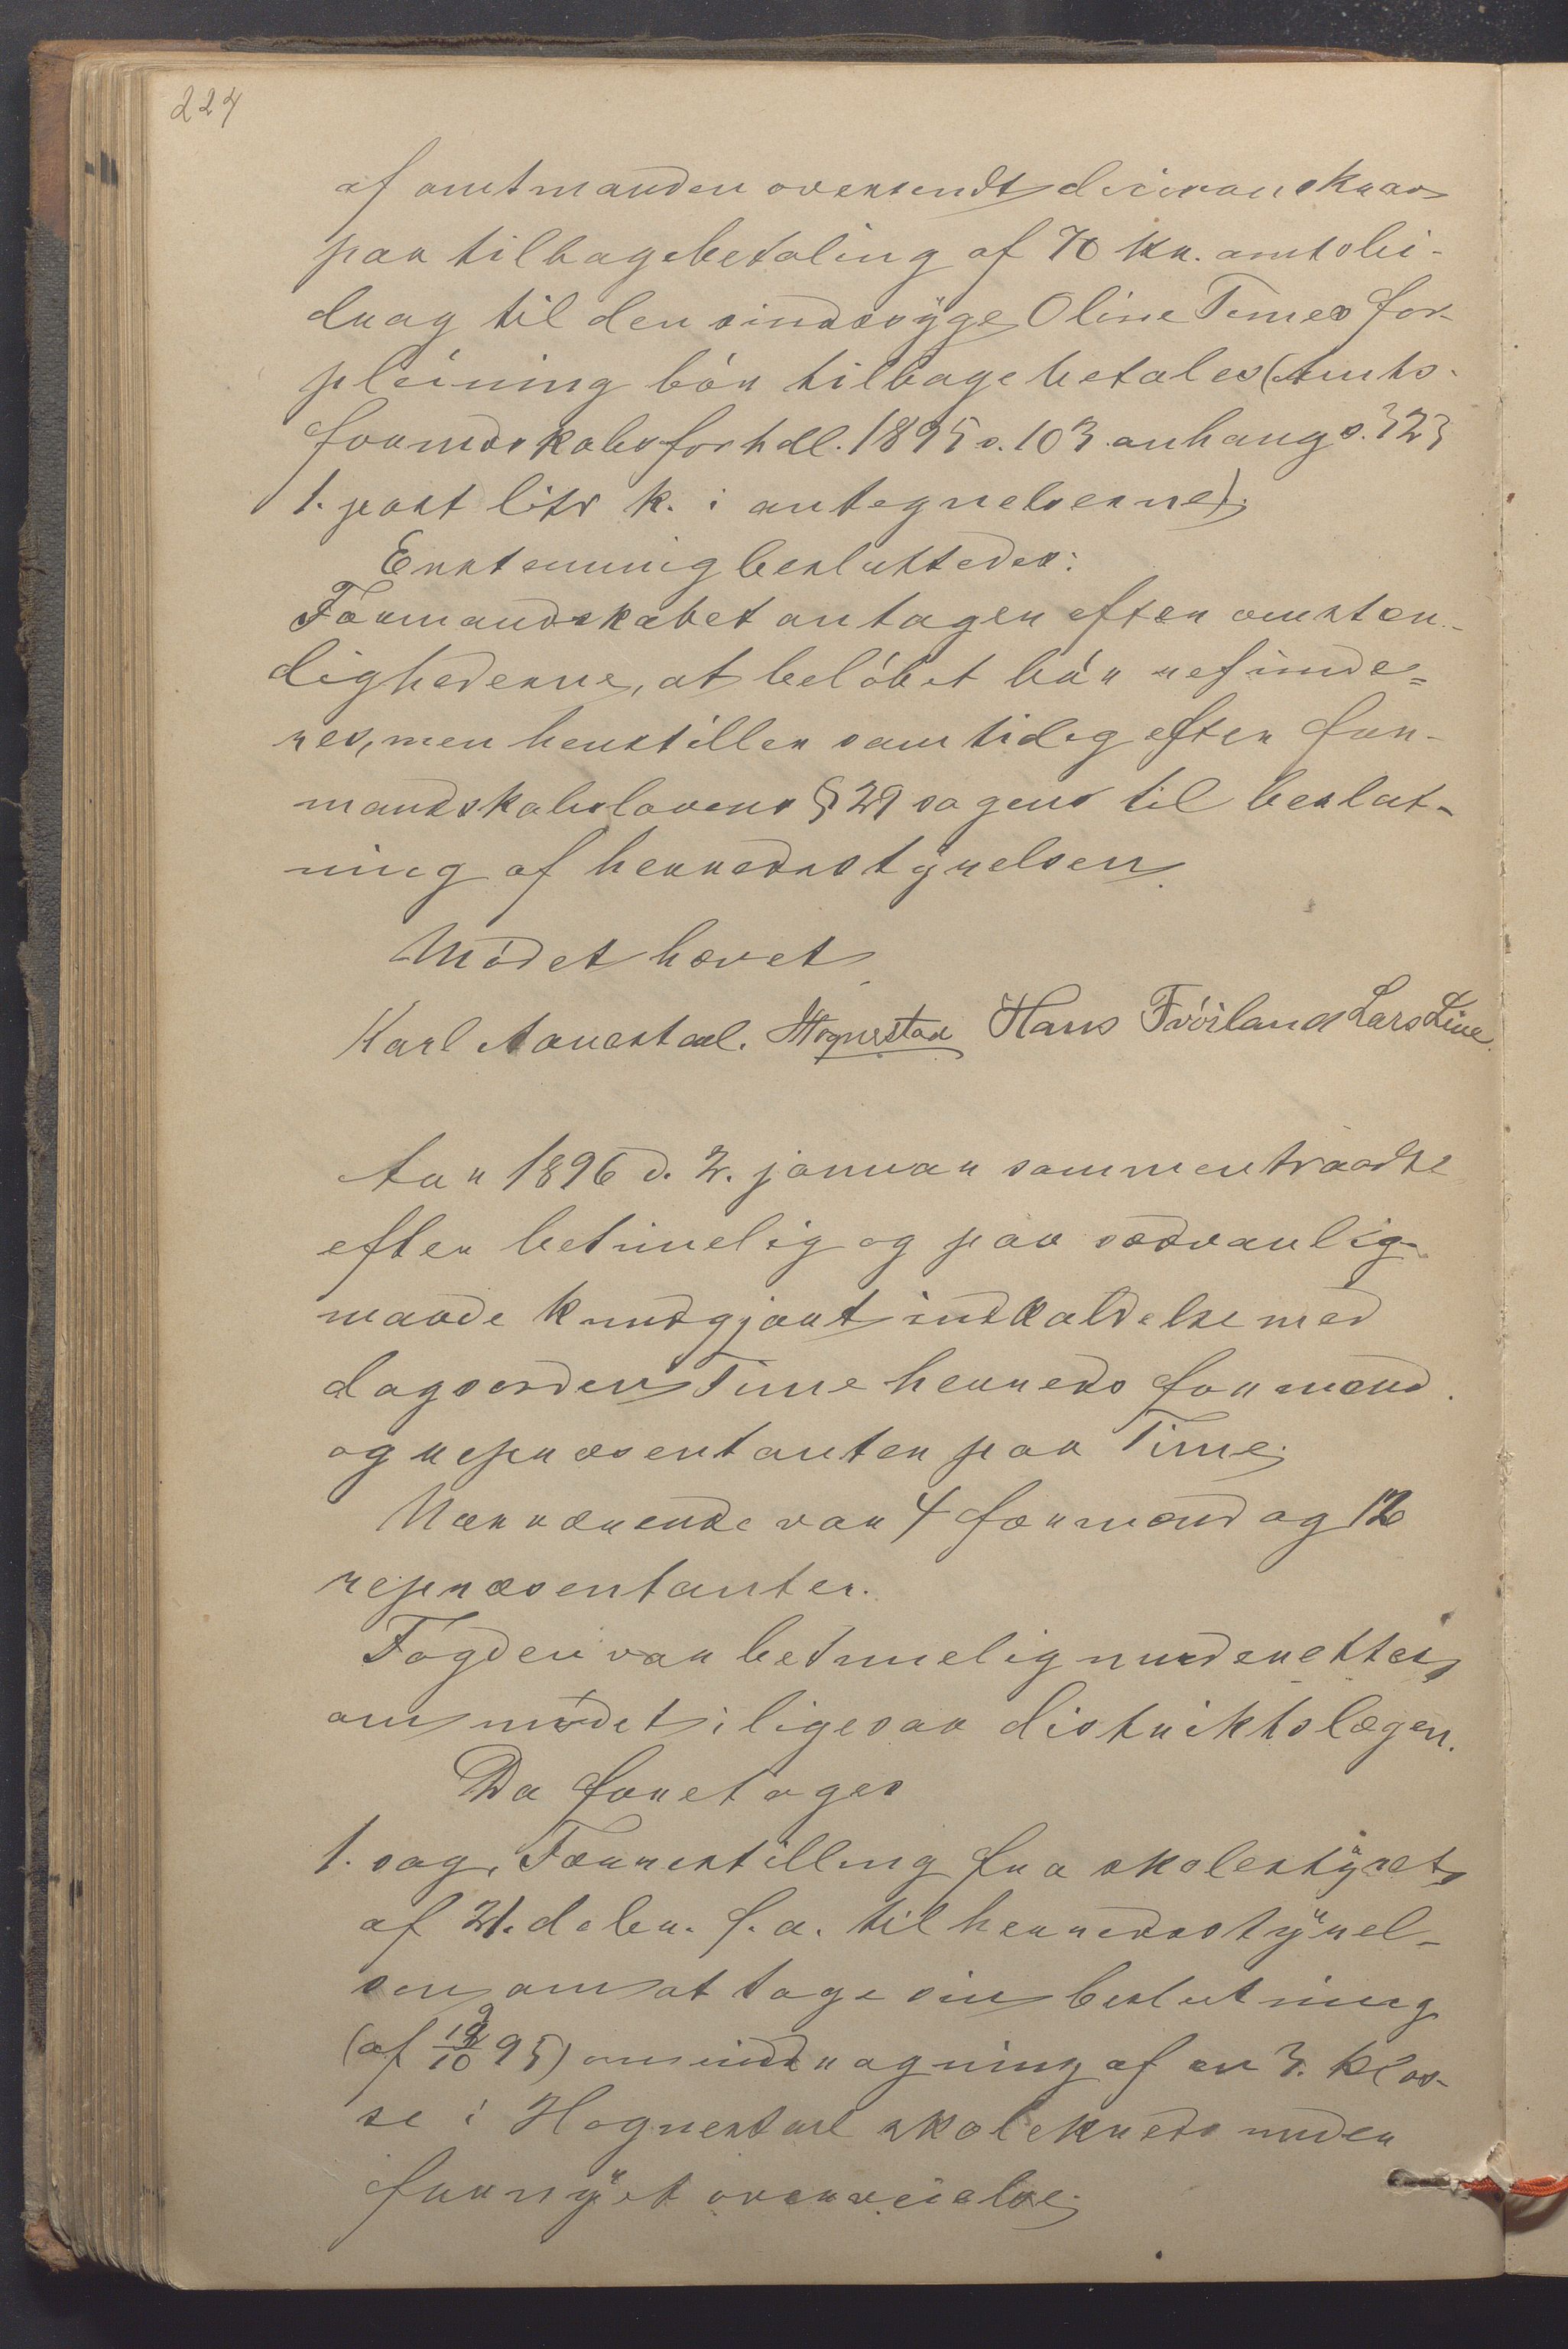 224
af amtmanden oversendt decisionskrav
paa tilbagebetaling af 70 kr. amtsbi-
drag til den sindssyge Oline Times for-
pleining bör tilbagebetales (Amts-
formdskabsforhdl. 1895 s. 103. anhang s. 323
1. post litr k. i antegnelserne).
Enstemmig besluttedes:
Formandskabet antager efter omstæn-
dighederne, at belöbet bör refunde-
res, men henstiller samtidig efter for-
mandskabslovens § 29 sagens til beslut-
ning af herredsstyrelsen.
Mödet hævet
Karl Aarestad. Hognestad Hans Fröiland Lars Line.
Aar 1896 d. 2. januar sammentraadte
efter betimelig og paa sædvanlig
maade kundgjort indkaldelse med
dagsorden Time herreds formænd
og repræsentanter paa Time.
Nærværende var 4 formænd og 12
repræsentanter.
Fogden var betimelig underrettet
om mödet; ligesaa distriktslægen.
Da foretoges
1. sag. Forestilling fra skolestyret
af 21. debr. f. a. til herredsstyrel-
sen om at tage sin beslutning
(af 19/10 95) om inddragning af en 3. klas-
se i Hognestad skolekreds under
fornyet overveielse.